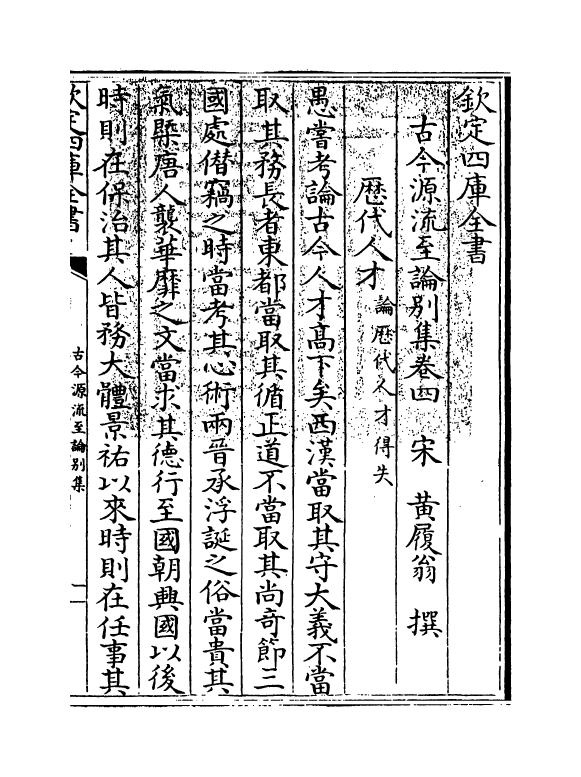 欽定四庫全書
古今源流至論别集卷四　宋　黄履翁　撰
歴代人才論歴代人才得失
愚嘗考論古今人才髙下矣西漢當取其守大義不當
取其務長者東都當取其循正道不當取其尚竒節三
國處僣竊之時當考其心術兩晉承浮誕之俗當貴其
氣槩唐人襲華靡之文當求其德行至國朝興國以後
時則在保治其人皆務大體景祐以來時則在任事其
欽定四庫全書
古今源流至論别集
一